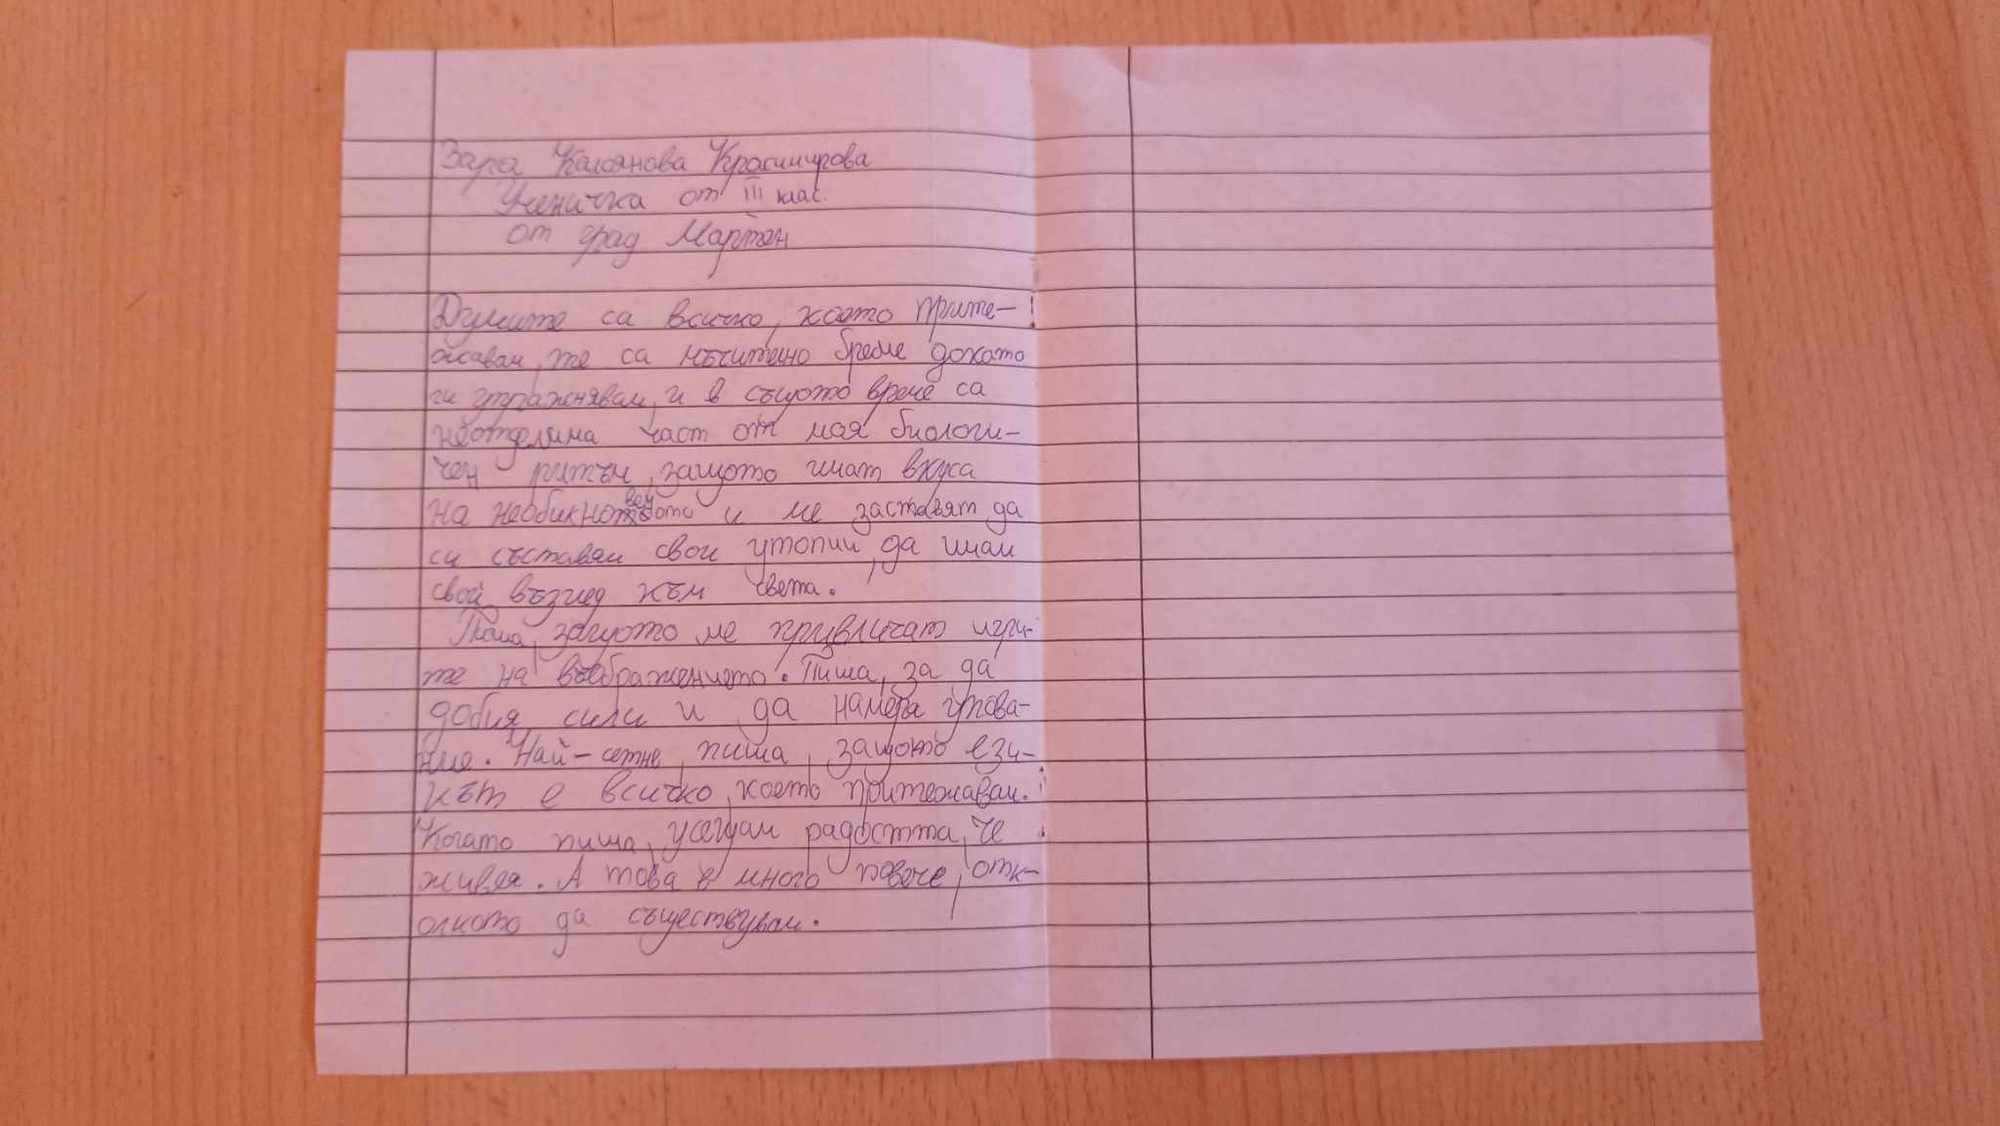 Зара Калоянова Красимирова
Ученичка от III клас.
от град Мартен
Думите са всичко, което прите-
жавам, те са мъчително бреме докато
ги упражнявам, и в същото време са
неотделима част от моя биологи-
чен ритъм, защото имат вкуса
на необикновеното и ме заставят да
си съставям свои утопии, да имам
свой възглед към света.
Пиша, защото ме привличат игри-
те на въображението. Пиша, за да
добия сили и да намеря упова-
ние. Най-сетне, пиша, защото ези-
кът е всичко, което притежавам.
Когато пиша, усещам радостта, че
живея. А това е много повече, отк-
олкото да съществувам.